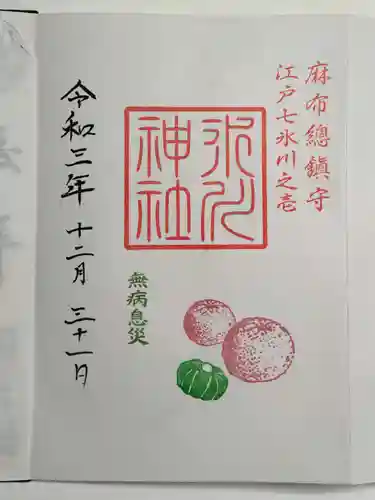 麻布總鎮守
江戸七氷川之壱
氷川
神社
無病息災
令和三年 十二月 三十一日